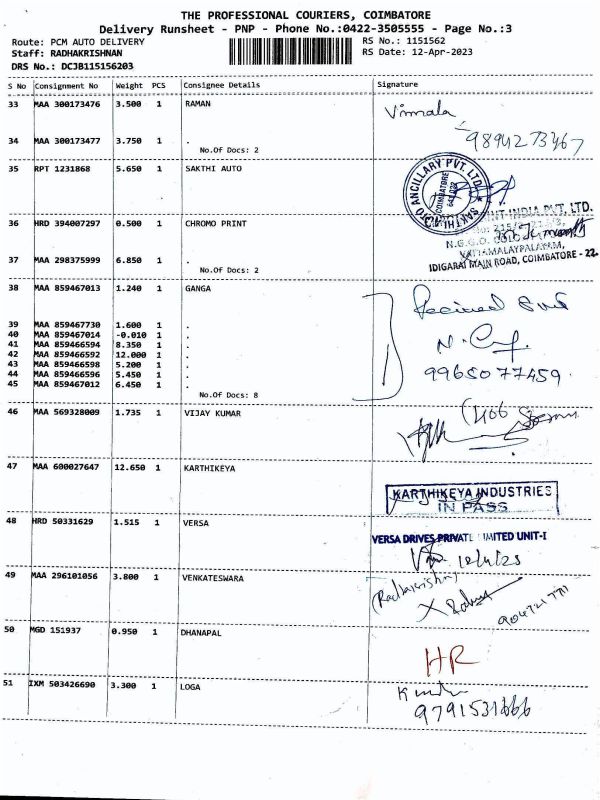 THE PROFESSIONAL COURIERS, COIMBATORE
Delivery Runsheet - PNP - Phone No.:0422-3505555 - Page No.:3
Route: PCM AUTO DELIVERY RS No.: 1151562
Staff: RADHAKRISHNAN RS Date: 12-Apr-2023
DRS No.: DCJB115156203
S No Consignment No Weight PCS Consignee Details Signature
33 MAA 300173476 3.500 1 RAMAN Vimmala
34 MAA 300173477 3.750 1 . 9894273467
No.Of Docs: 2
35 RPT 1231868 5.650 1 SAKTHI AUTO
SAKTHI AUTO ANCILLARY PVT. LTD.
COIMBATORE
36 HRD 394007297 0.500 1 CHROMO PRINT
INDIA PVT. LTD.
N.G.G.O.
37 MAA 298375999 6.850 1 .
IDIGARAI MAIN ROAD, COIMBATORE - 22.
No.Of Docs: 2
38 MAA 859467013 1.240 1 GANGA
39 MAA 859467730 1.600 1 .
40 MAA 859467014 -0.010 1 .
41 MAA 859466594 8.350 1 .
42 MAA 859466592 12.000 1 .
43 MAA 859466598 5.200 1 .
44 MAA 859466596 5.450 1 .
45 MAA 859467012 6.450 1 .
9965077459
No.Of Docs: 8
46 MAA 569328009 1.735 1 VIJAY KUMAR
47 MAA 600027647 12.650 1 KARTHIKEYA
KARTHIKEYA INDUSTRIES
IN PASS
48 HRD 50331629 1.515 1 VERSA
VERSA DRIVES PRIVATE LIMITED UNIT-I
12/4/23
49 MAA 296101056 3.800 1 VENKATESWARA
(Radhakrishnan)
50 MGD 151937 0.950 1 DHANAPAL
HR
51 IXM 503426690 3.300 1 LOGA
9791531666